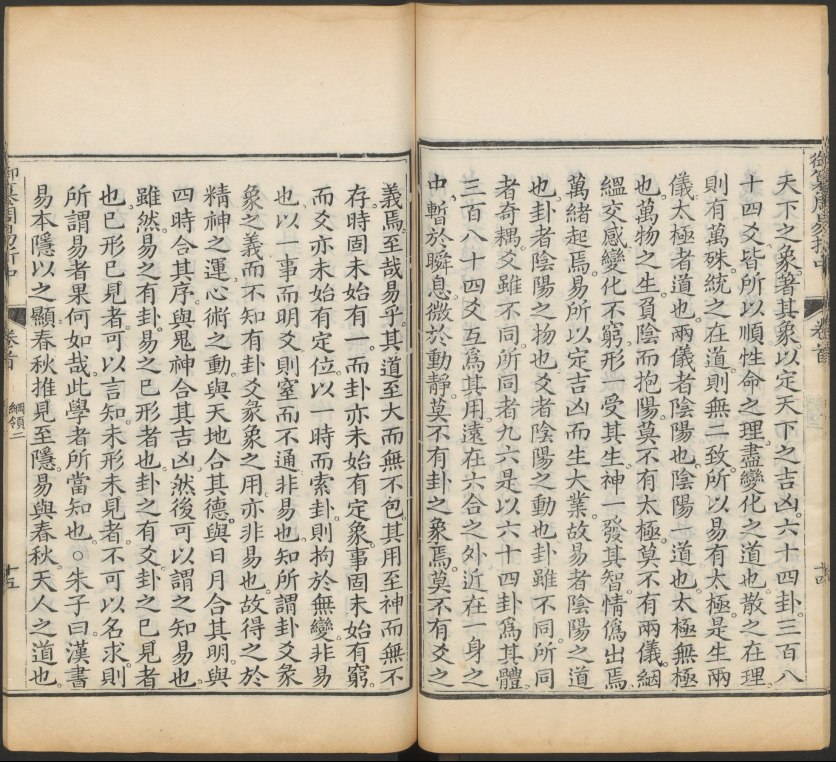 御纂周易折中
卷首
十四
天下之象著其象以定天下之吉凶六十四卦三百八
十四爻皆所以順性命之理盡變化之道也散之在理
則有萬殊統之在道則無二致所以易有太極是生兩
儀太極者道也兩儀者陰陽也陰陽一道也太極無極
也萬物之生負陰而抱陽莫不有太極莫不有兩儀絪
縕交感變化不窮形一受其生神一發其智情僞出焉
萬緒起焉易所以定吉凶而生大業故易者陰陽之道
也卦者陰陽之物也爻者陰陽之動也卦雖不同所同
者奇耦爻雖不同所同者九六是以六十四卦爲其體
三百八十四爻互爲其用遠在六合之外近在一身之
中暫於瞬息微於動靜莫不有卦之象焉莫不有爻之
義焉至哉易乎其道至大而無不包其用至神而無不
存時固未始有一而卦亦未始有定象事固未始有窮
而爻亦未始有定位以一時而索卦則拘於無變非易
也以一事而明爻則窒而不通非易也知所謂卦爻彖
象之義而不知有卦爻彖象之用亦非易也故得之於
精神之運心術之動與天地合其德與日月合其明與
四時合其序與鬼神合其吉凶然後可以謂之知易也
雖然易之有卦易之已形者也卦之有爻卦之已見者
也已形已見者可以言知未形未見者不可以名求則
所謂易者果何如哉此學者所當知也○朱子曰漢書
易本隱以之顯春秋推見至隱易與春秋天人之道也
御纂周易折中
卷首
綱領二
十五